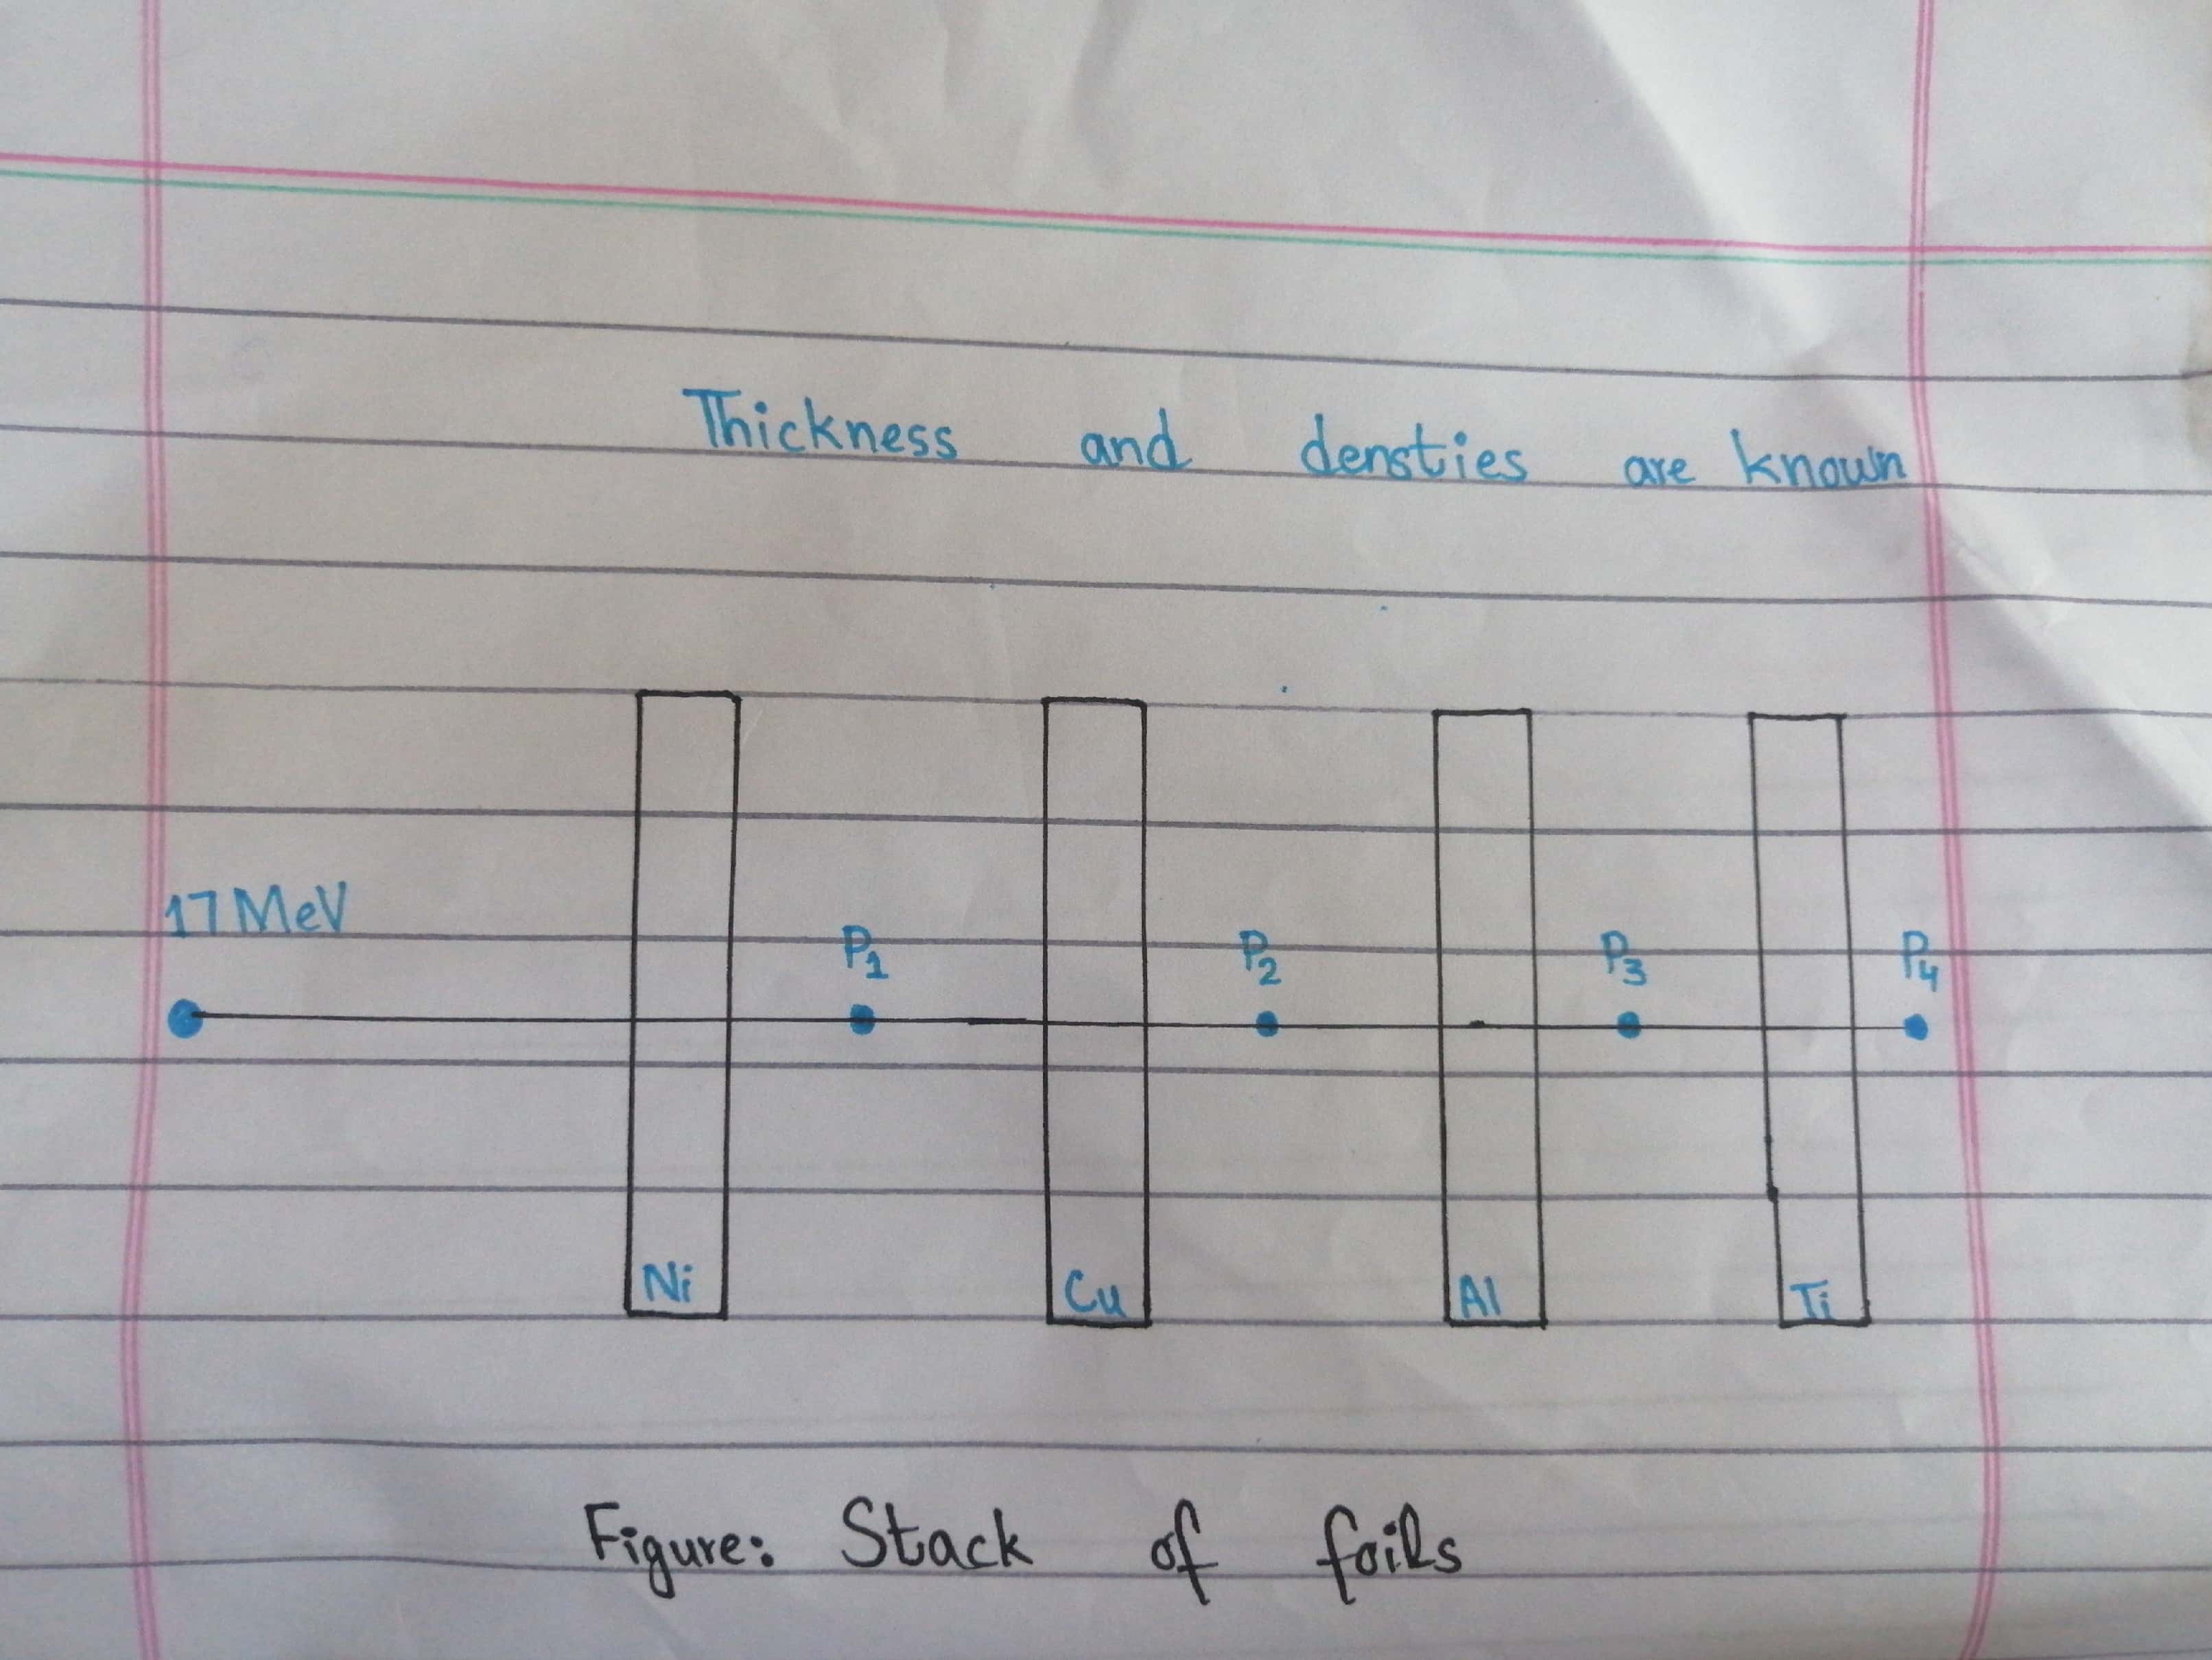 Thickness and densties are known
17 MeV
P1 P2 P3 P4
Ni Cu Al Ti
Figure: Stack of foils